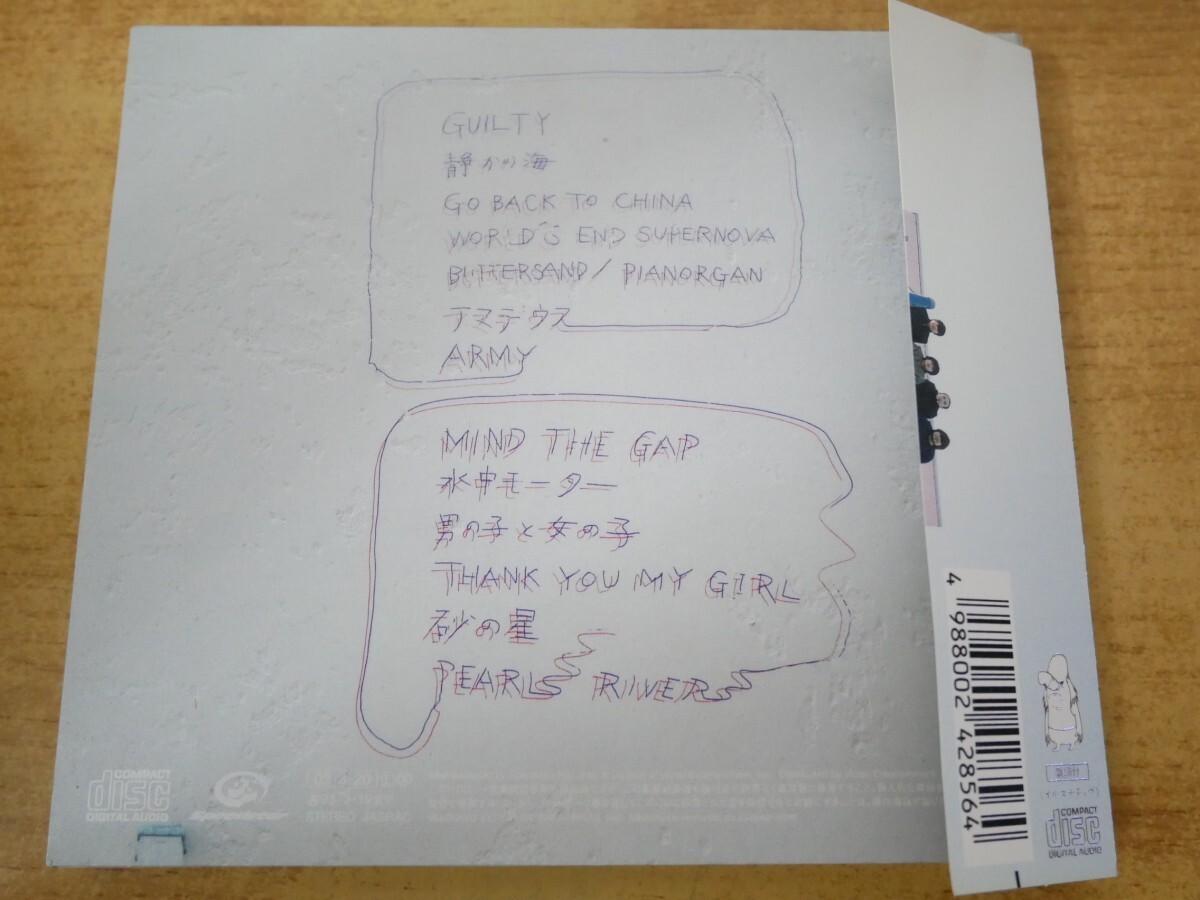 GUILTY
静かの海
GO BACK TO CHINA
WORLD'S END SUPERNOVA
BUTTERSAND / PIANORGAN
アマデウス
ARMY
MIND THE GAP
水中モーター
男の子と女の子
THANK YOU MY GIRL
砂の星
PEARL RIVER
COMPACT
disc
DIGITAL AUDIO
Speedstar
4 988002 428564
歌詞付
COMPACT
disc
DIGITAL AUDIO